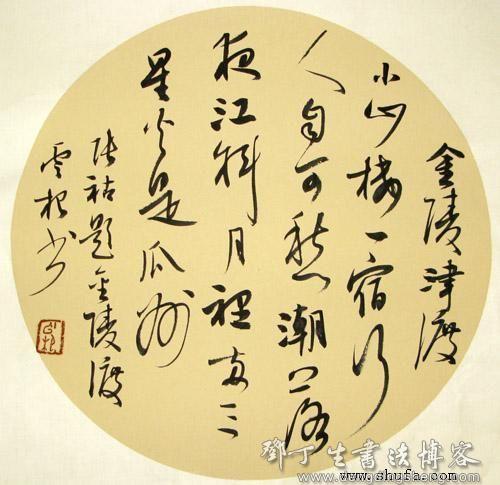 金陵津渡
小山楼一宿行
人自可愁潮落
夜江斜月裡两三
星火是瓜洲
张祜题金陵渡
雲根书
鄧丁生書法博客
www.shufa.com